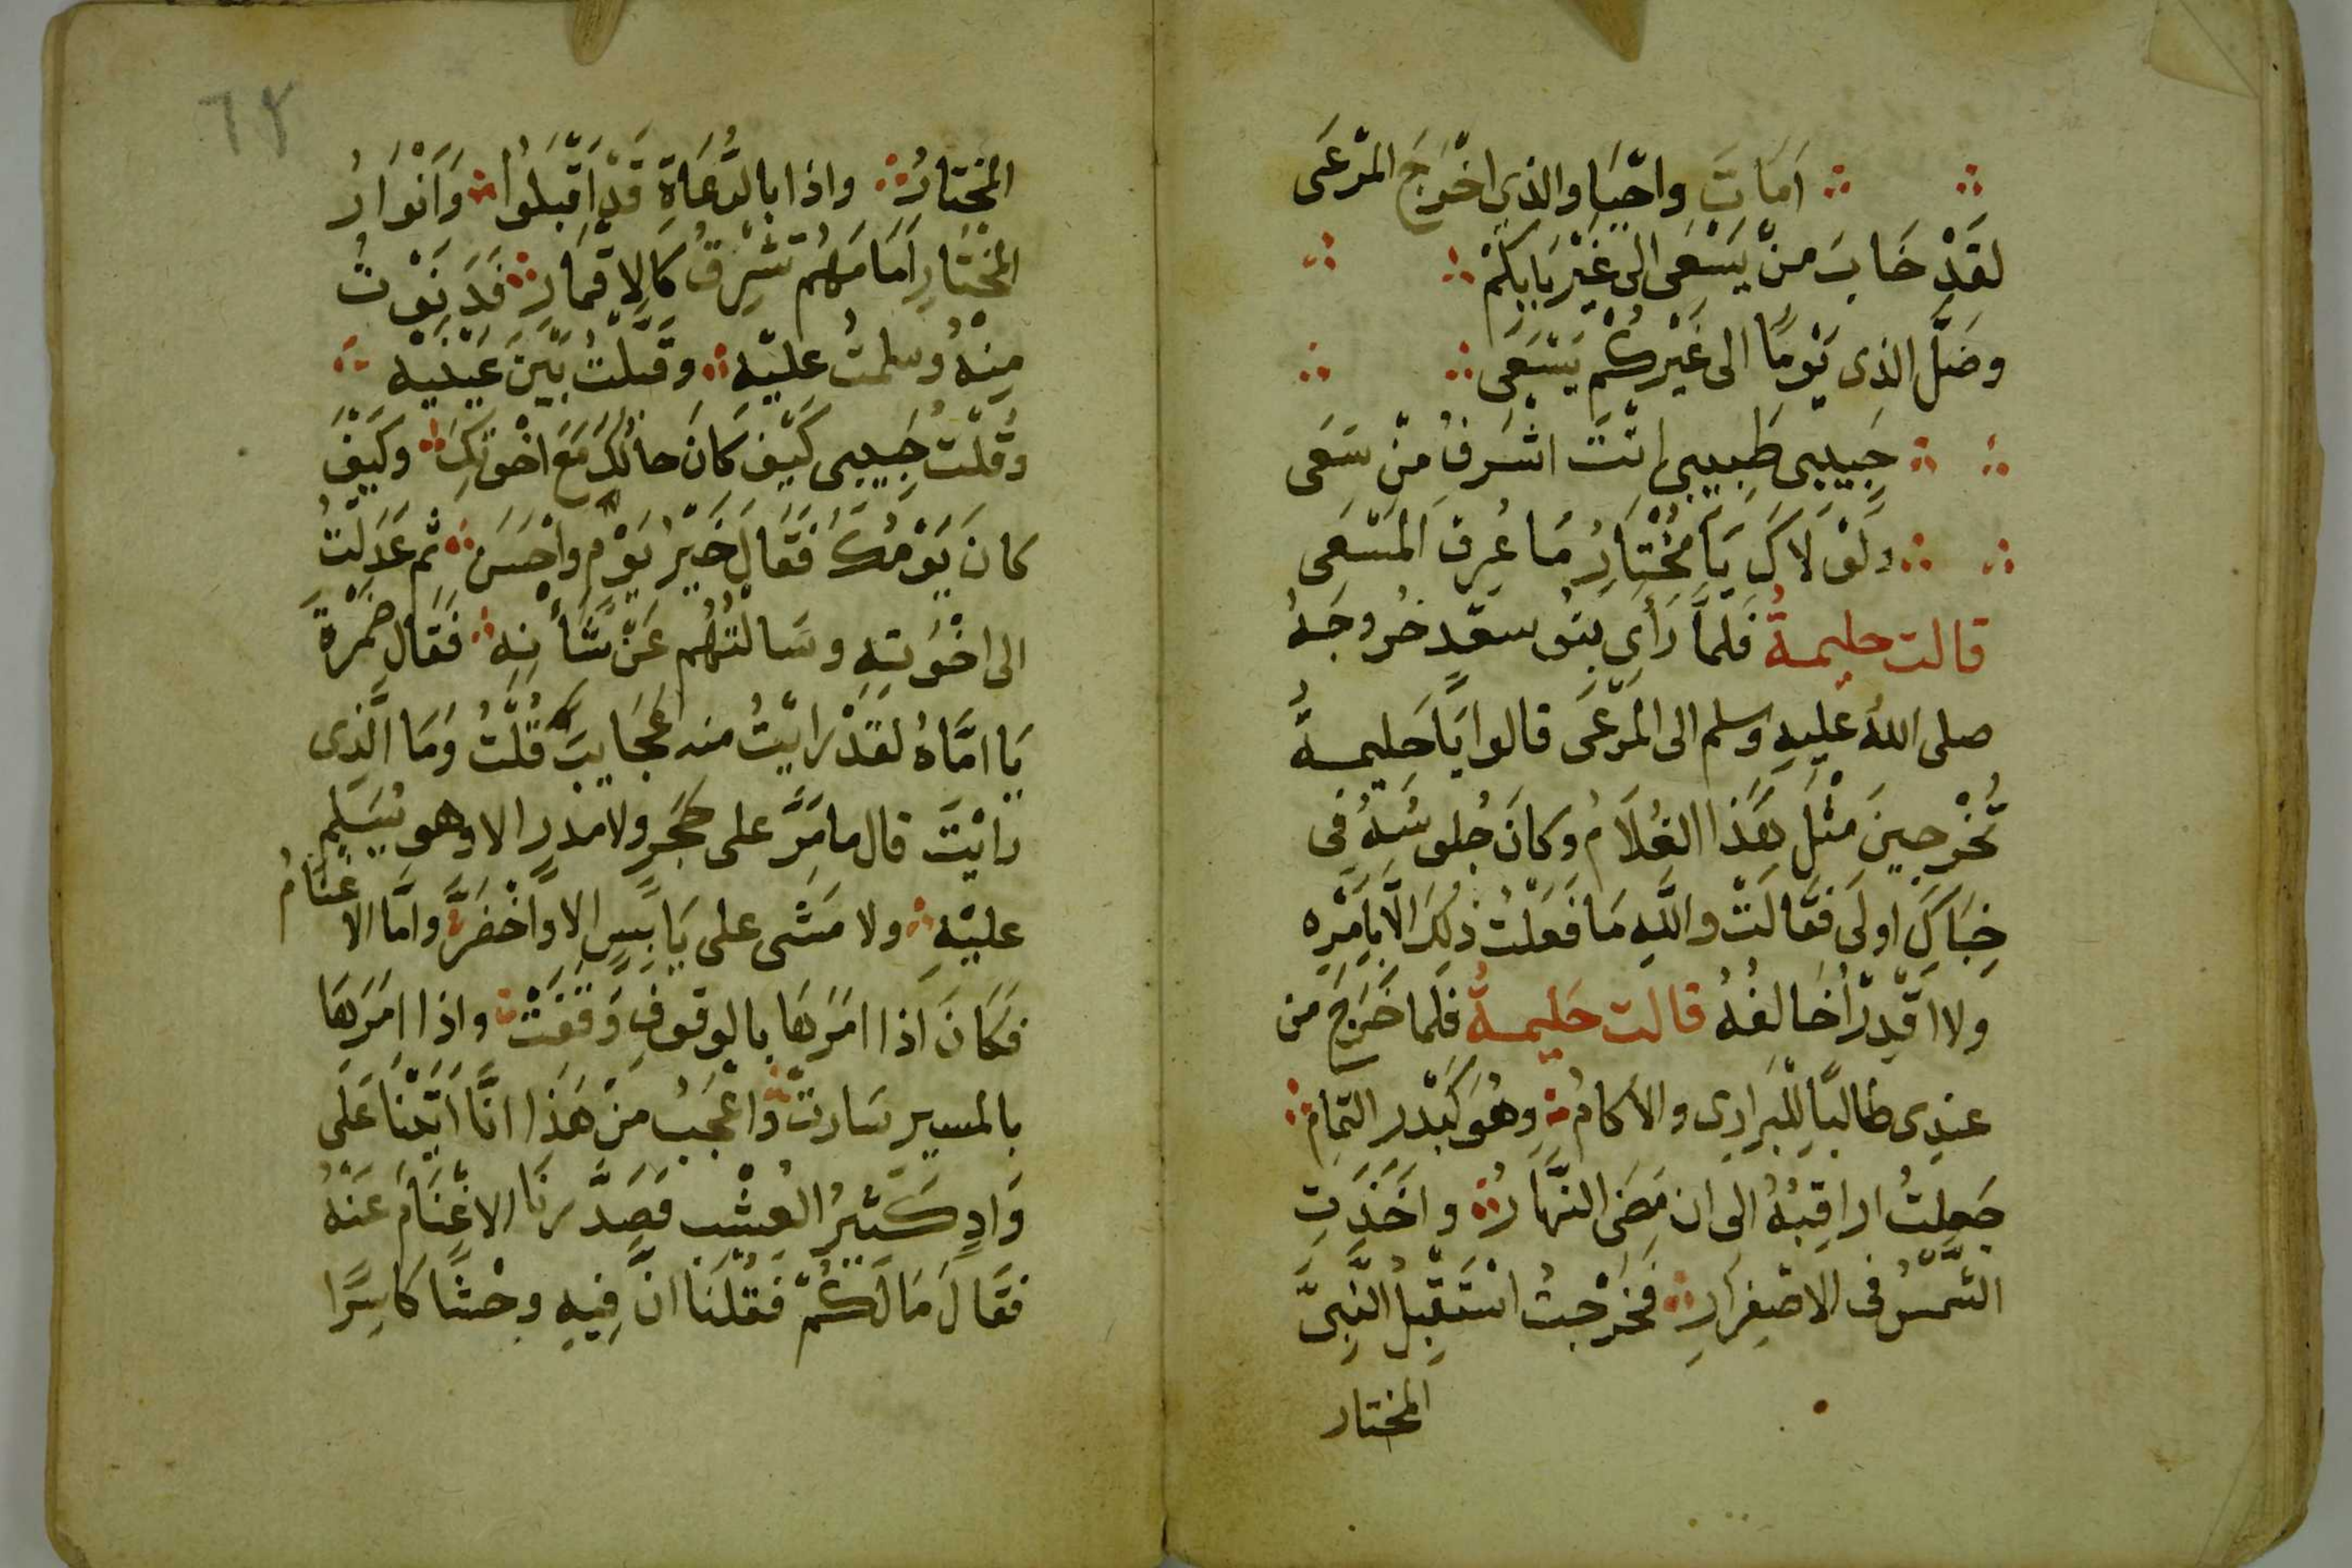 اَمَاتَ واحْيَا والذي اخْرَجَ المرْعَى
لقَدْ خَابَ منْ يَسْعَى الى غَيْرِ بَابِكُمْ
وضَلَّ الذي يَوْمًا الى غَيْرِكُمْ يَسْعَى
حَبِيبى طَبِيبى انْتَ اشْرَفُ مَنْ سَعَى
ولَوْلَاكَ يَا مُخْتَارُ مَا عُرِفَ المَسْعَى
قالت حليمةُ فلمَّا رَأى بنُو سعْدٍ خُروجَهُ
صلى اللهُ عليهِ وسلم الى المرْعَى قالوا يَا حَليمةُ
تُخْرِجينَ مثْلَ هَذا الغُلَامُ وكانَ جُلوسُهُ فى
خِبَاكَ اولَى فقَالَتْ واللهِ مَا فَعَلْتُ ذلِكَ الَّا بِاَمْرِه
ولا اقْدِرُ اُخَالفُهُ قالت حَليمةُ فلَما خَرَجَ من
عندِى طالبًا للْبَرارِى والاكامُ وهُوَ كَبَدْرِ التمامِ
جَعلتُ اراقِبُهُ الى ان مَضَى النَّهَارُ واَخَذَتِ
الشَّمْسُ فى الاصْفِرَارِ فَخَرَجْتُ اسْتَقْبِلُ النَّبِىَّ
المختار
٦٢
المخْتارُ واذا بالرُّعَاةِ قَدْ اَقْبَلُوا وَاَنْوَارُ
المخْتَارِ اَمَامَهُم تُشْرِقُ كَالاقمَارِ فَدَنَوْتُ
مِنْهُ وسلمتُ عليْهِ وقبَّلتُ بَيْنَ عَيْنَيْهِ
وقُلْتُ حَبِيبى كَيْفَ كَانَ حالُكَ مَعَ اخْوَتِكَ وكَيْفَ
كانَ يَوْمُكَ فَقَالَ خَيْرُ يَوْمٍ واحْسَن ثم عَدَلْتُ
الى اخْوَتِهِ وسَالْتُهُم عَنْ شَأنِهِ فَقَال ضَمْرَةُ
يَا امَّاهُ لقَدْ رايْتُ منه عَجَايبَ قُلْتُ ومَا الَّذِى
رايْتَ قال ما مَرَّ على حَجَرٍ ولا مدَرٍ الا وهو يُسَلِمُ
عليْهِ ولا مَشَى على يَابِسٍ الا واخْضَرَّ وامَّا الاغنَامُ
فكَانَ اذا امَرَهَا بالوقوفِ وَقَفَتْ واذا امَرَهَا
بالمسير سَارتْ واعْجَبُ منْ هَذَا انَّا اتَيْنَا عَلَى
وَادٍ كَثيْرُ العُشْبِ فَصَدَّرنَا الاغْنَامَ عَنْهُ
فقَالَ مَا لَكُمْ فَقُلنَا انَّ فِيهِ وحْشًا كَاسِرًا